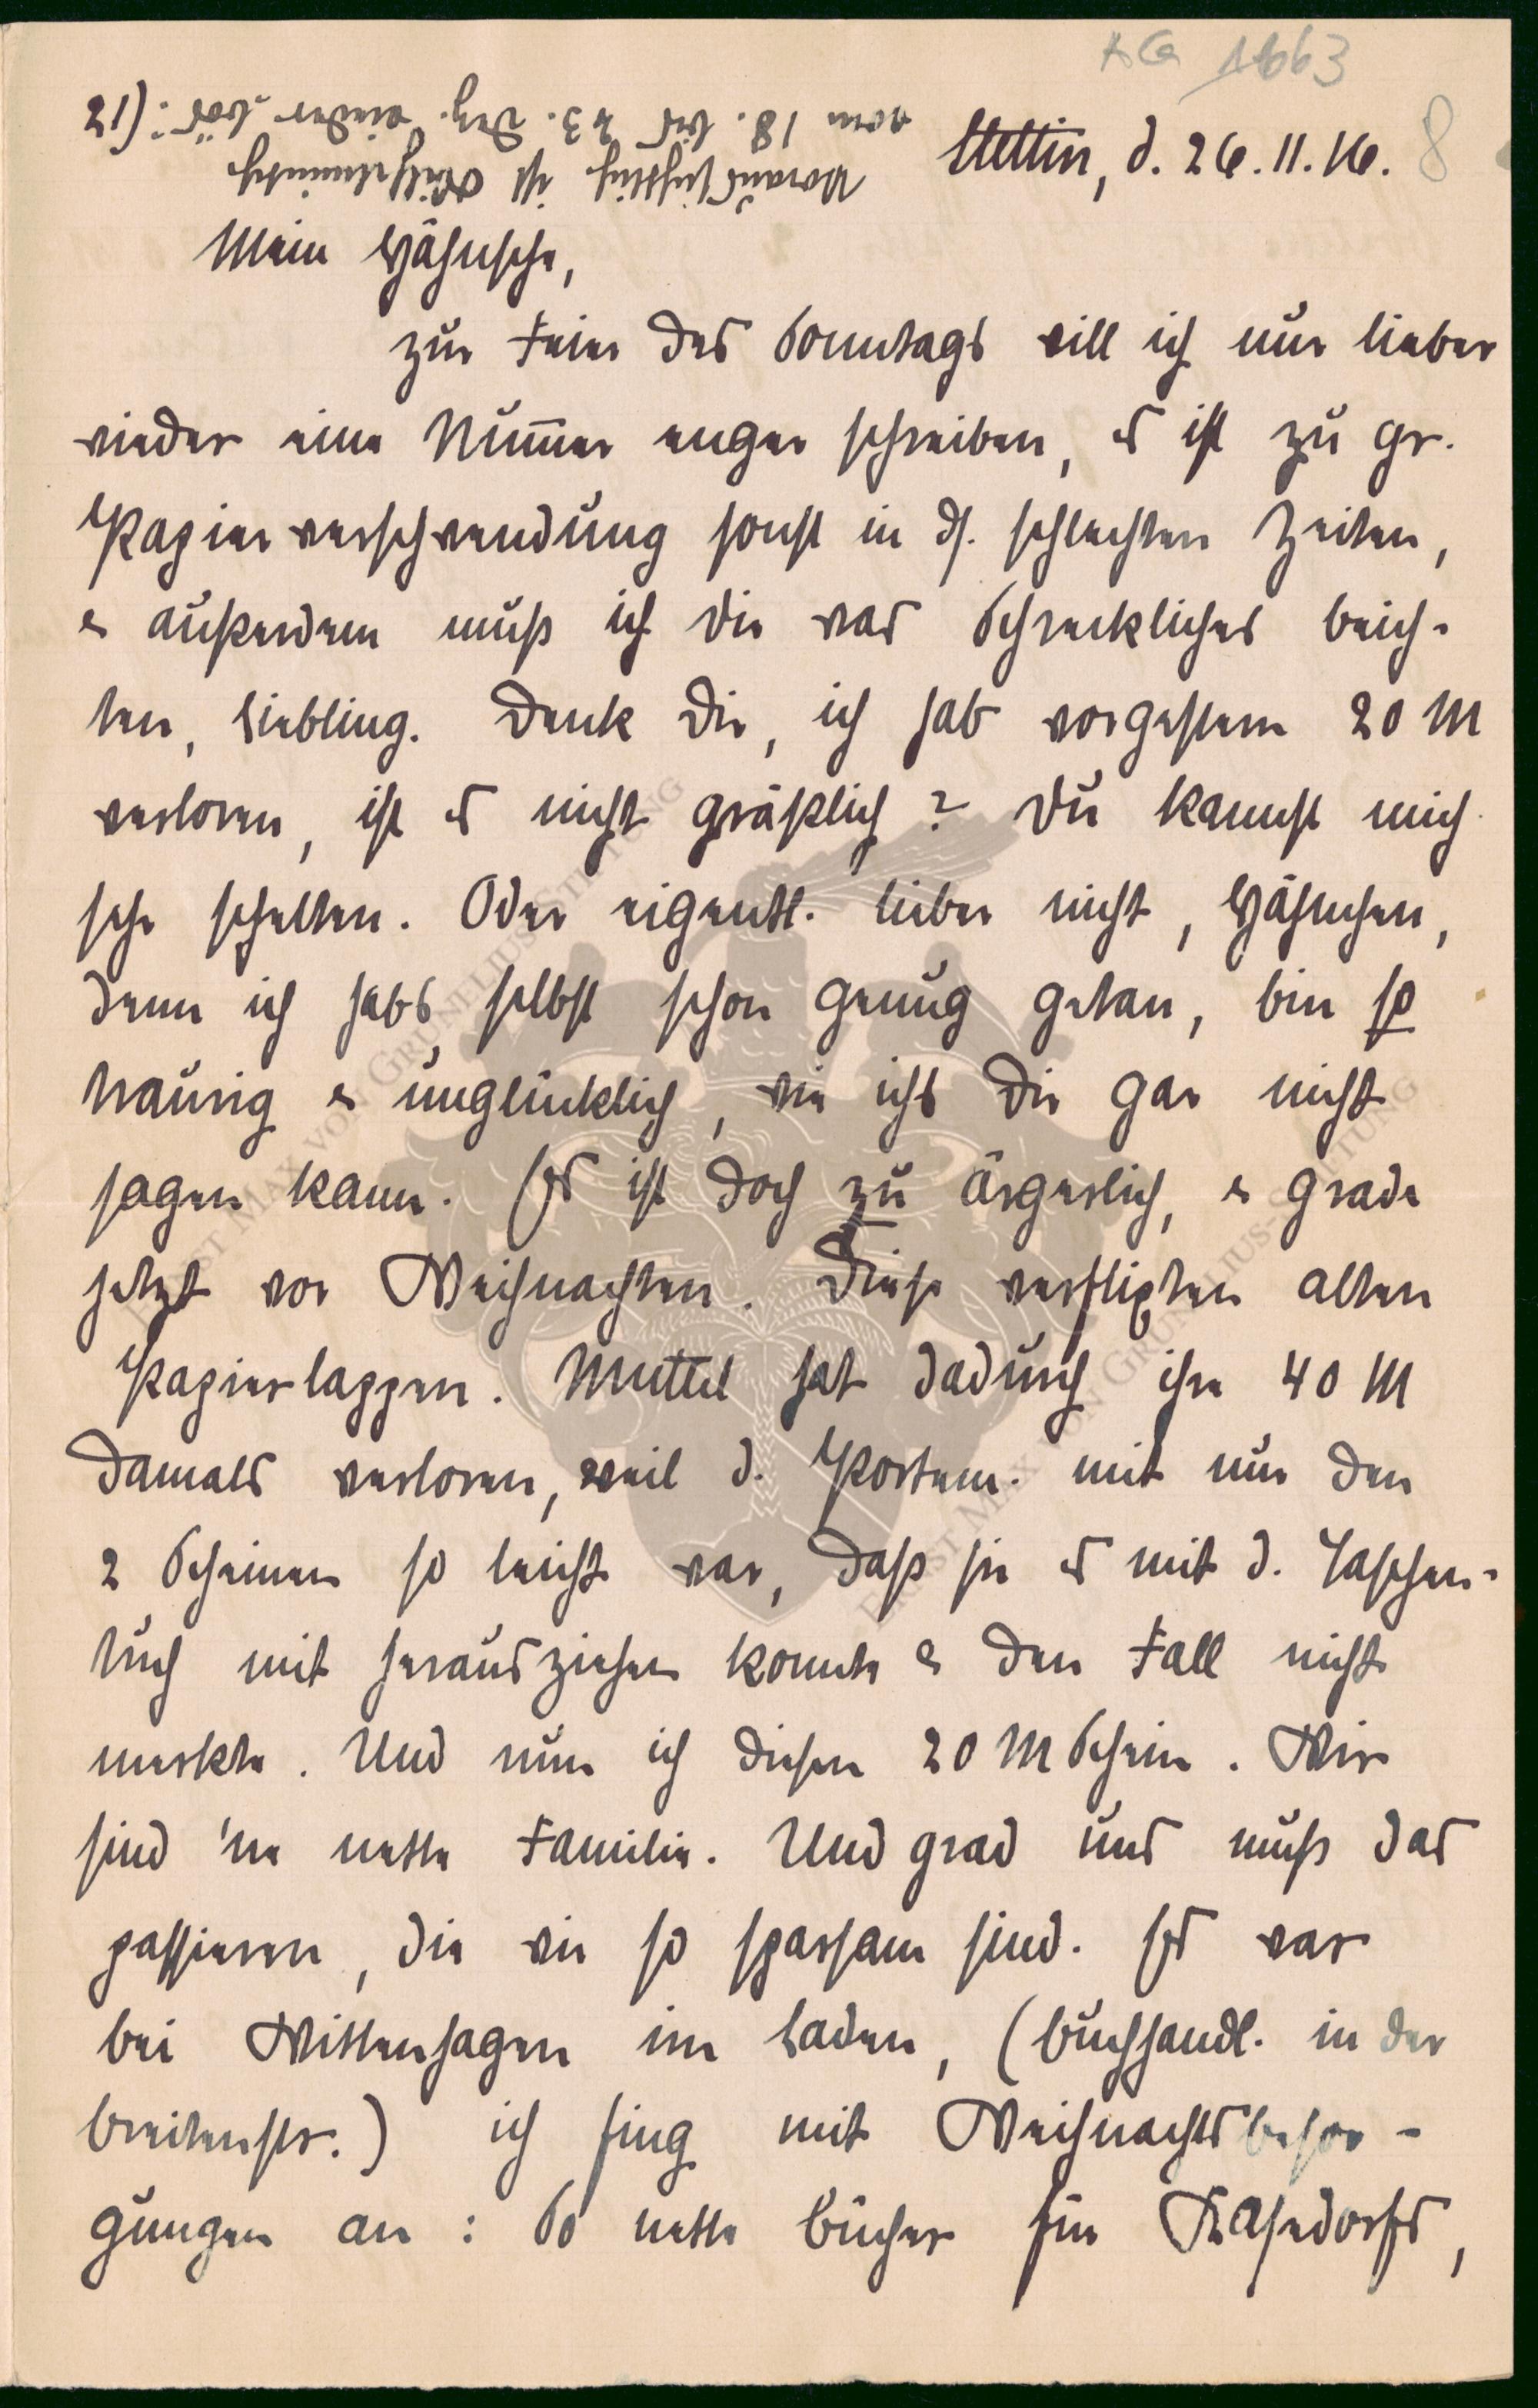 KG 1663
8
Stettin, d. 26.11.16.
Voraussichtlich ist
vom 18. bis 23. Dez. wieder bös. (12
Mein Hähnsche,
zur Feier des Sonntags will ich nur lieber
wieder eine Num̅er enger schreiben, es ist zu gr.
Papierverschwendung sonst in ds. schlechten Zeiten,
& außerdem muß ich Dir was Schreckliches beich-
ten, Liebling. Denk Dir, ich hab vorgestern 20 M
verloren, ist es nicht gräßlich? Du kannst mich
sehr schelten. Oder eigentl. lieber nicht, Hähnchen,
denn ich habs selbst schon genug getan, bin so
traurig & unglücklich, wie ichs Dir gar nicht
sagen kann. Es ist doch zu ärgerlich, & grade
jetzt vor Weihnachten. Diese verflixten alten
Papierlappen. Muttel hat dadurch ihre 40 M
damals verloren, weil d. Portem. mit nur den
2 Scheinen so leicht war, daß sie es mit d. Taschen-
tuch mit herausziehen konnte & den Fall nicht
merkte. Und nun ich diesen 20 M Schein. Wir
sind 'ne nette Familie. Und grad uns muß das
passieren, die wir so sparsam sind. Es war
bei Wittenhagen im Laden, (Buchhandl. in der
Breitenstr.) ich fing mit Weihnachtsbesor-
gungen an: So nette Bücher für
ERNST MAX VON GRUNELIUS-STIFTUNG
ERNST MAX VON GRUNELIUS-STIFTUNG